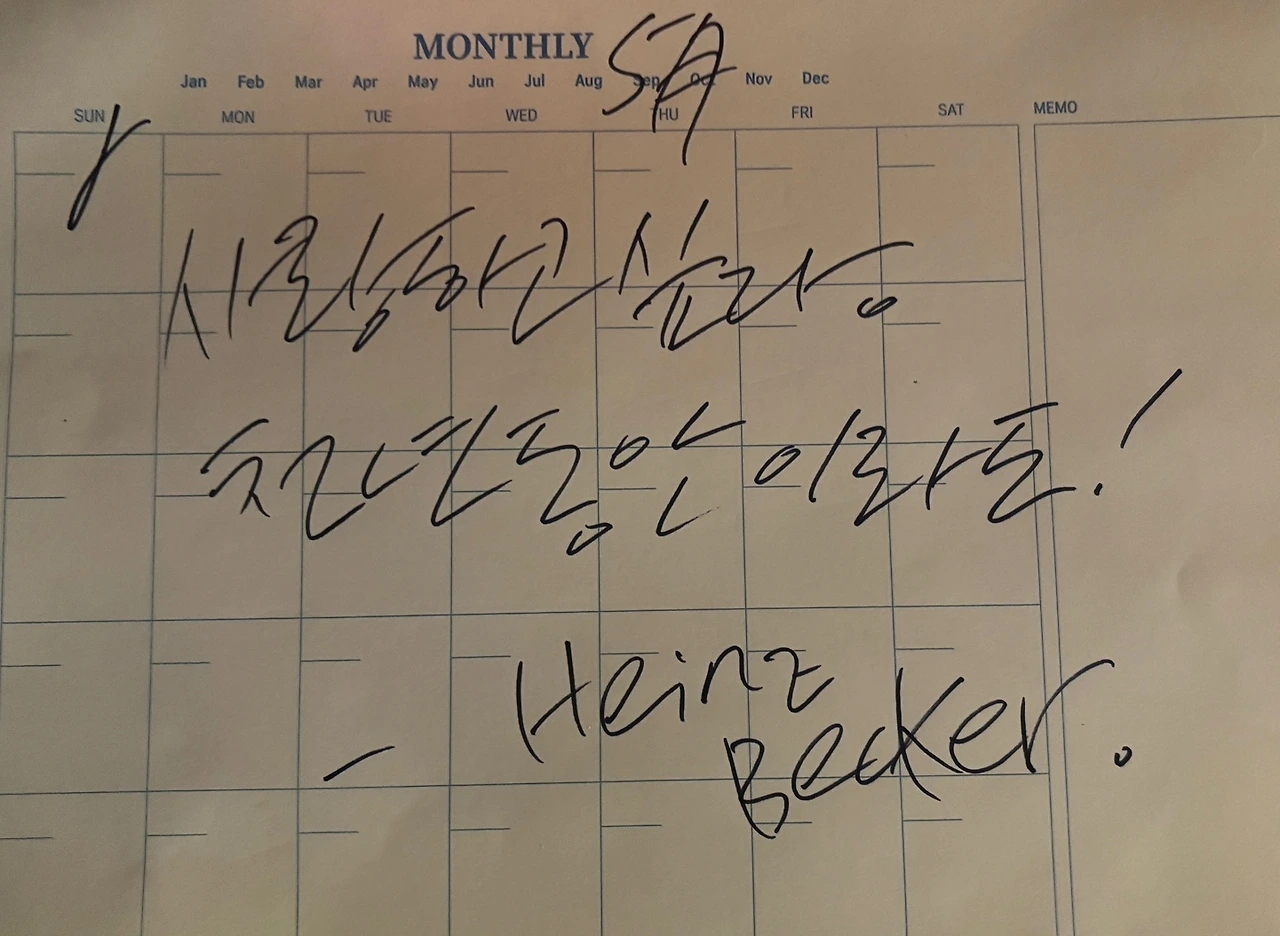 MONTHLY
Jan Feb Mar Apr May Jun Jul Aug Sep Oct Nov Dec
SUN MON TUE WED THU FRI SAT MEMO
사랑하고 싶다.
천년동안 이라도!
- Heinz
Becker.